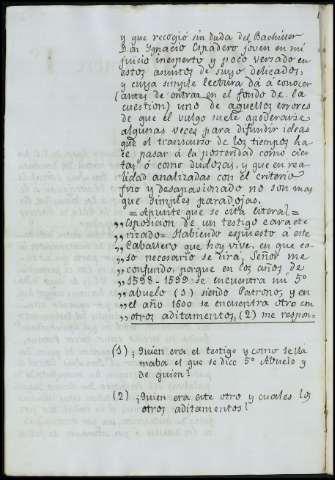 y que recogió sin duda del Bachiller
Don Ignacio Espadero joven en mi
juicio inexperto y poco versado en
estos asuntos de suyo delicados,
y cuya simple lectura da á conocer
(antes de entrar en el fondo de la
cuestion) uno de aquellos errores
de que el vulgo suele apoderarse
algunas veces para difundir ideas
que el transcurso de los tiempos ha-
ce pasar á la posteridad como cier-
tas ó como dudosas, y que en rea-
lidad analizadas con el criterio
frio y desapasionado no son mas
que simples paradojas.
=Apunte que se cita literal=
„Esposicion de un testigo caracte-
„rizado= Habiendo espuesto á este
„Caballero que hoy vive, en que ca-
„so necesario se dirá, Señor me
„confundo porque en los años de
„1598-1599 se encuentra mi 5º
„abuelo (1) siendo Patrono, y en
„el año 1600 se encuentra otro con
„otros aditamentos, (2) me respon=
(1) ¿Quien era el testigo y como se lla
maba el que se dice 5º Abuelo y
de quien?
(2) ¿Quien era este otro y cuales los
otros aditamentos?